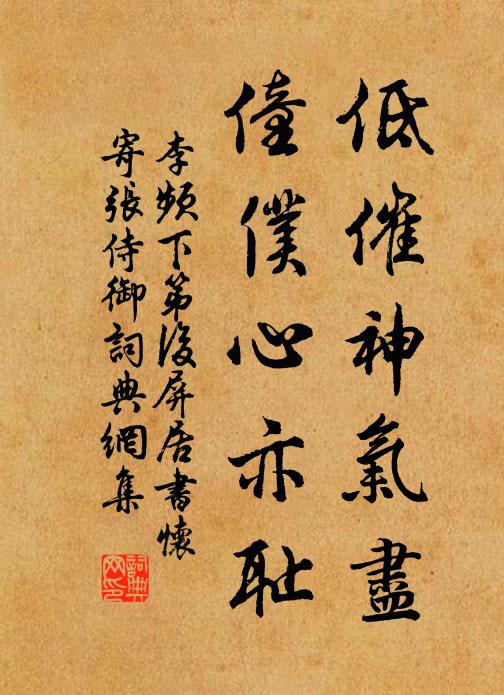 低催神氣盡
僮僕心亦耻
李频下第後屏居書懷
寄張侍御詞典網集
詞典网印